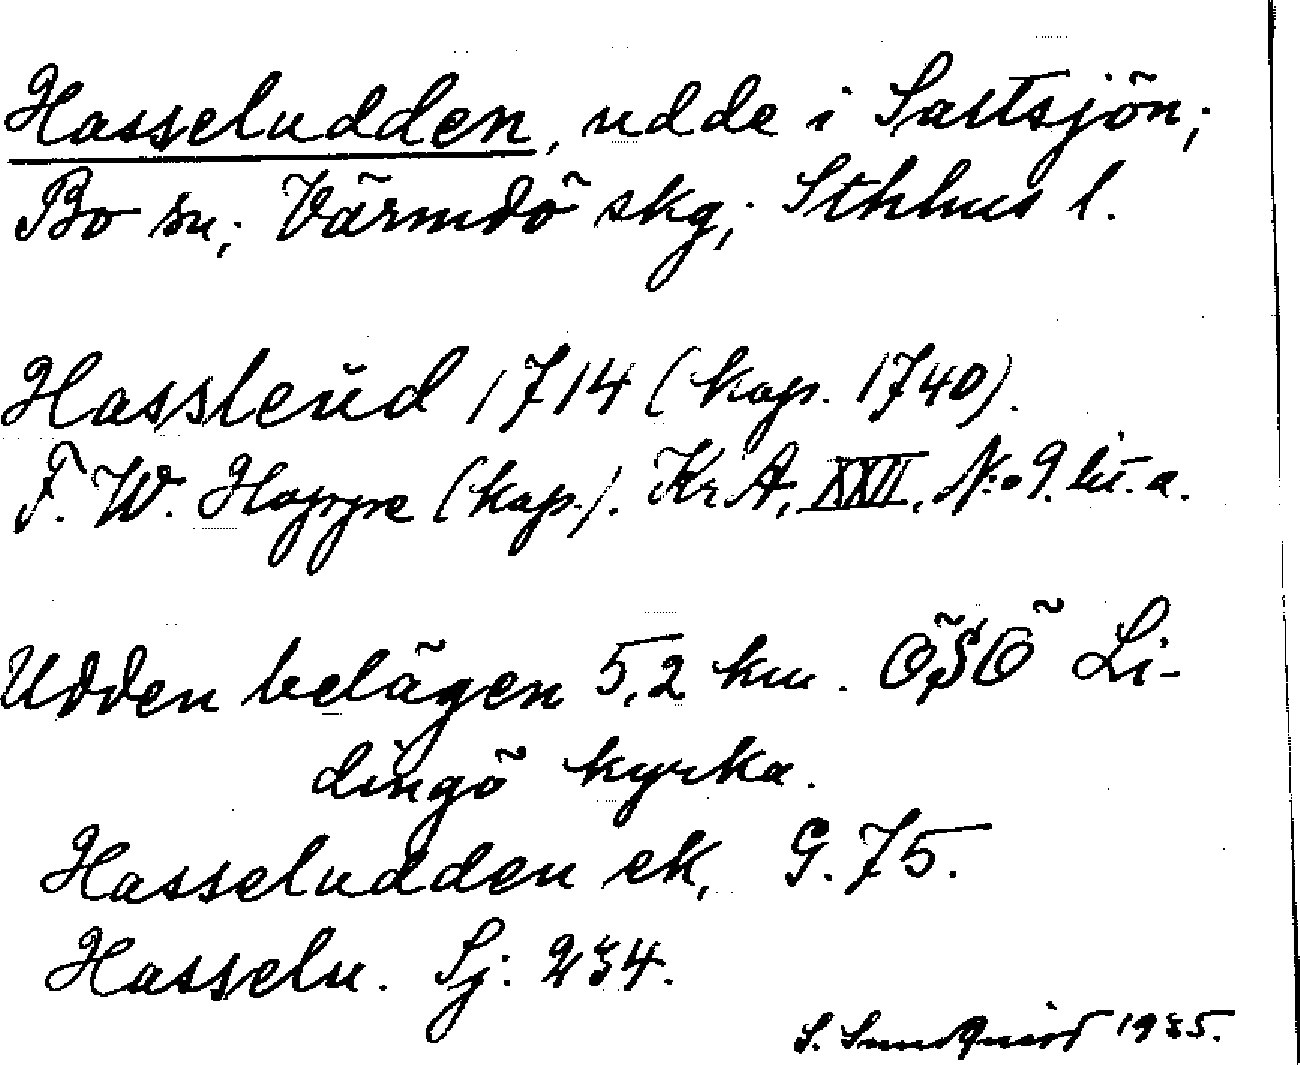 Hasseludden, udde i Saltsjön;
Bo sn; Värmdö skg; Sthlms l.
Hassleüd 1714 (kop. 1740).
F. W. Hoppe (kop.). Kr A, XXII, N:o 9. lit. a.
Udden belägen 5,2 km. ÖSÖ Li-
dingö kyrka.
Hasseludden ek, G. 75.
Hasselu. Sj: 234.
S. Sundquist 1935.